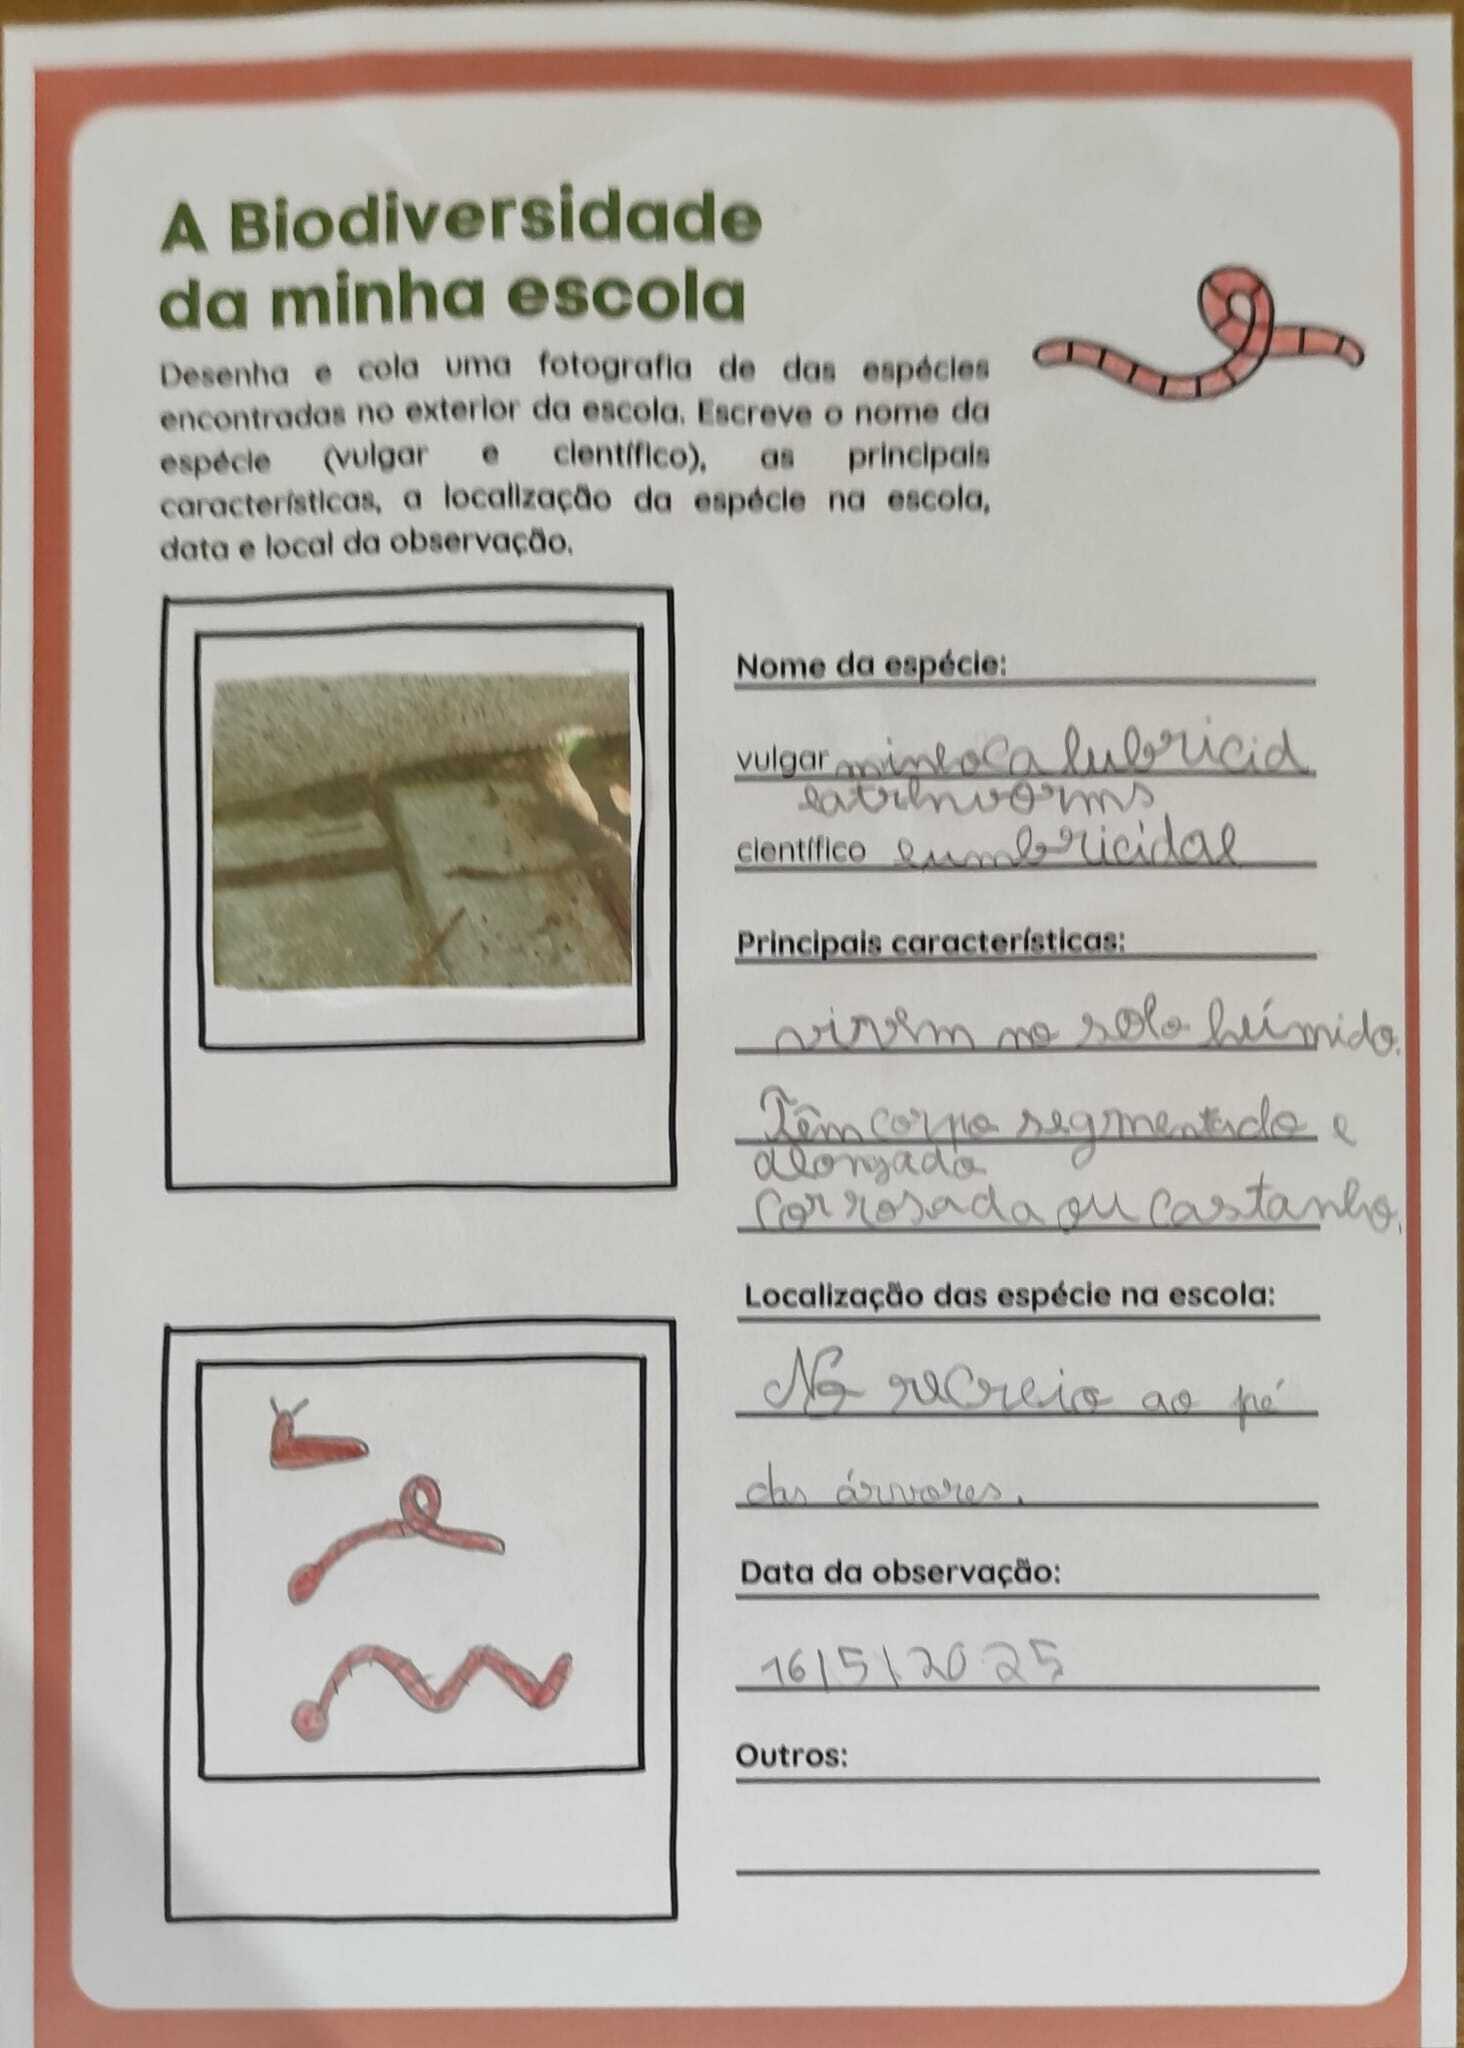 A Biodiversidade
da minha escola
Desenha e cola uma fotografia de das espécies
encontradas no exterior da escola. Escreve o nome da
espécie (vulgar e científico), as principais
características, a localização da espécie na escola,
data e local da observação.
Nome da espécie:
vulgar minhoca lubricid
eatrhworms
científico lumbricidae
Principais características:
vivem no solo húmido.
Têm corpo segmentado e
alongado
cor rosada ou castanho.
Localização das espécie na escola:
No recreio ao pé
das árvores.
Data da observação:
16/5/2025
Outros: